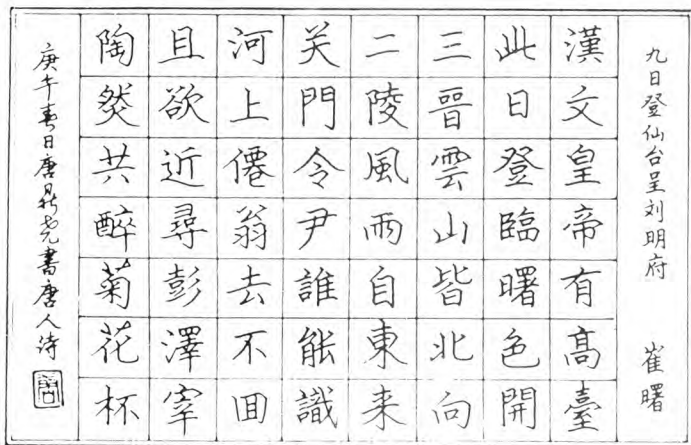 九日登仙台呈刘明府 崔曙
漢文皇帝有髙臺
此日登臨曙色開
三晉雲山皆北向
二陵風雨自東来
关門令尹誰能識
河上僊翁去不囬
且欲近尋彭澤宰
陶然共醉菊花杯
庚午春日唐書唐人诗